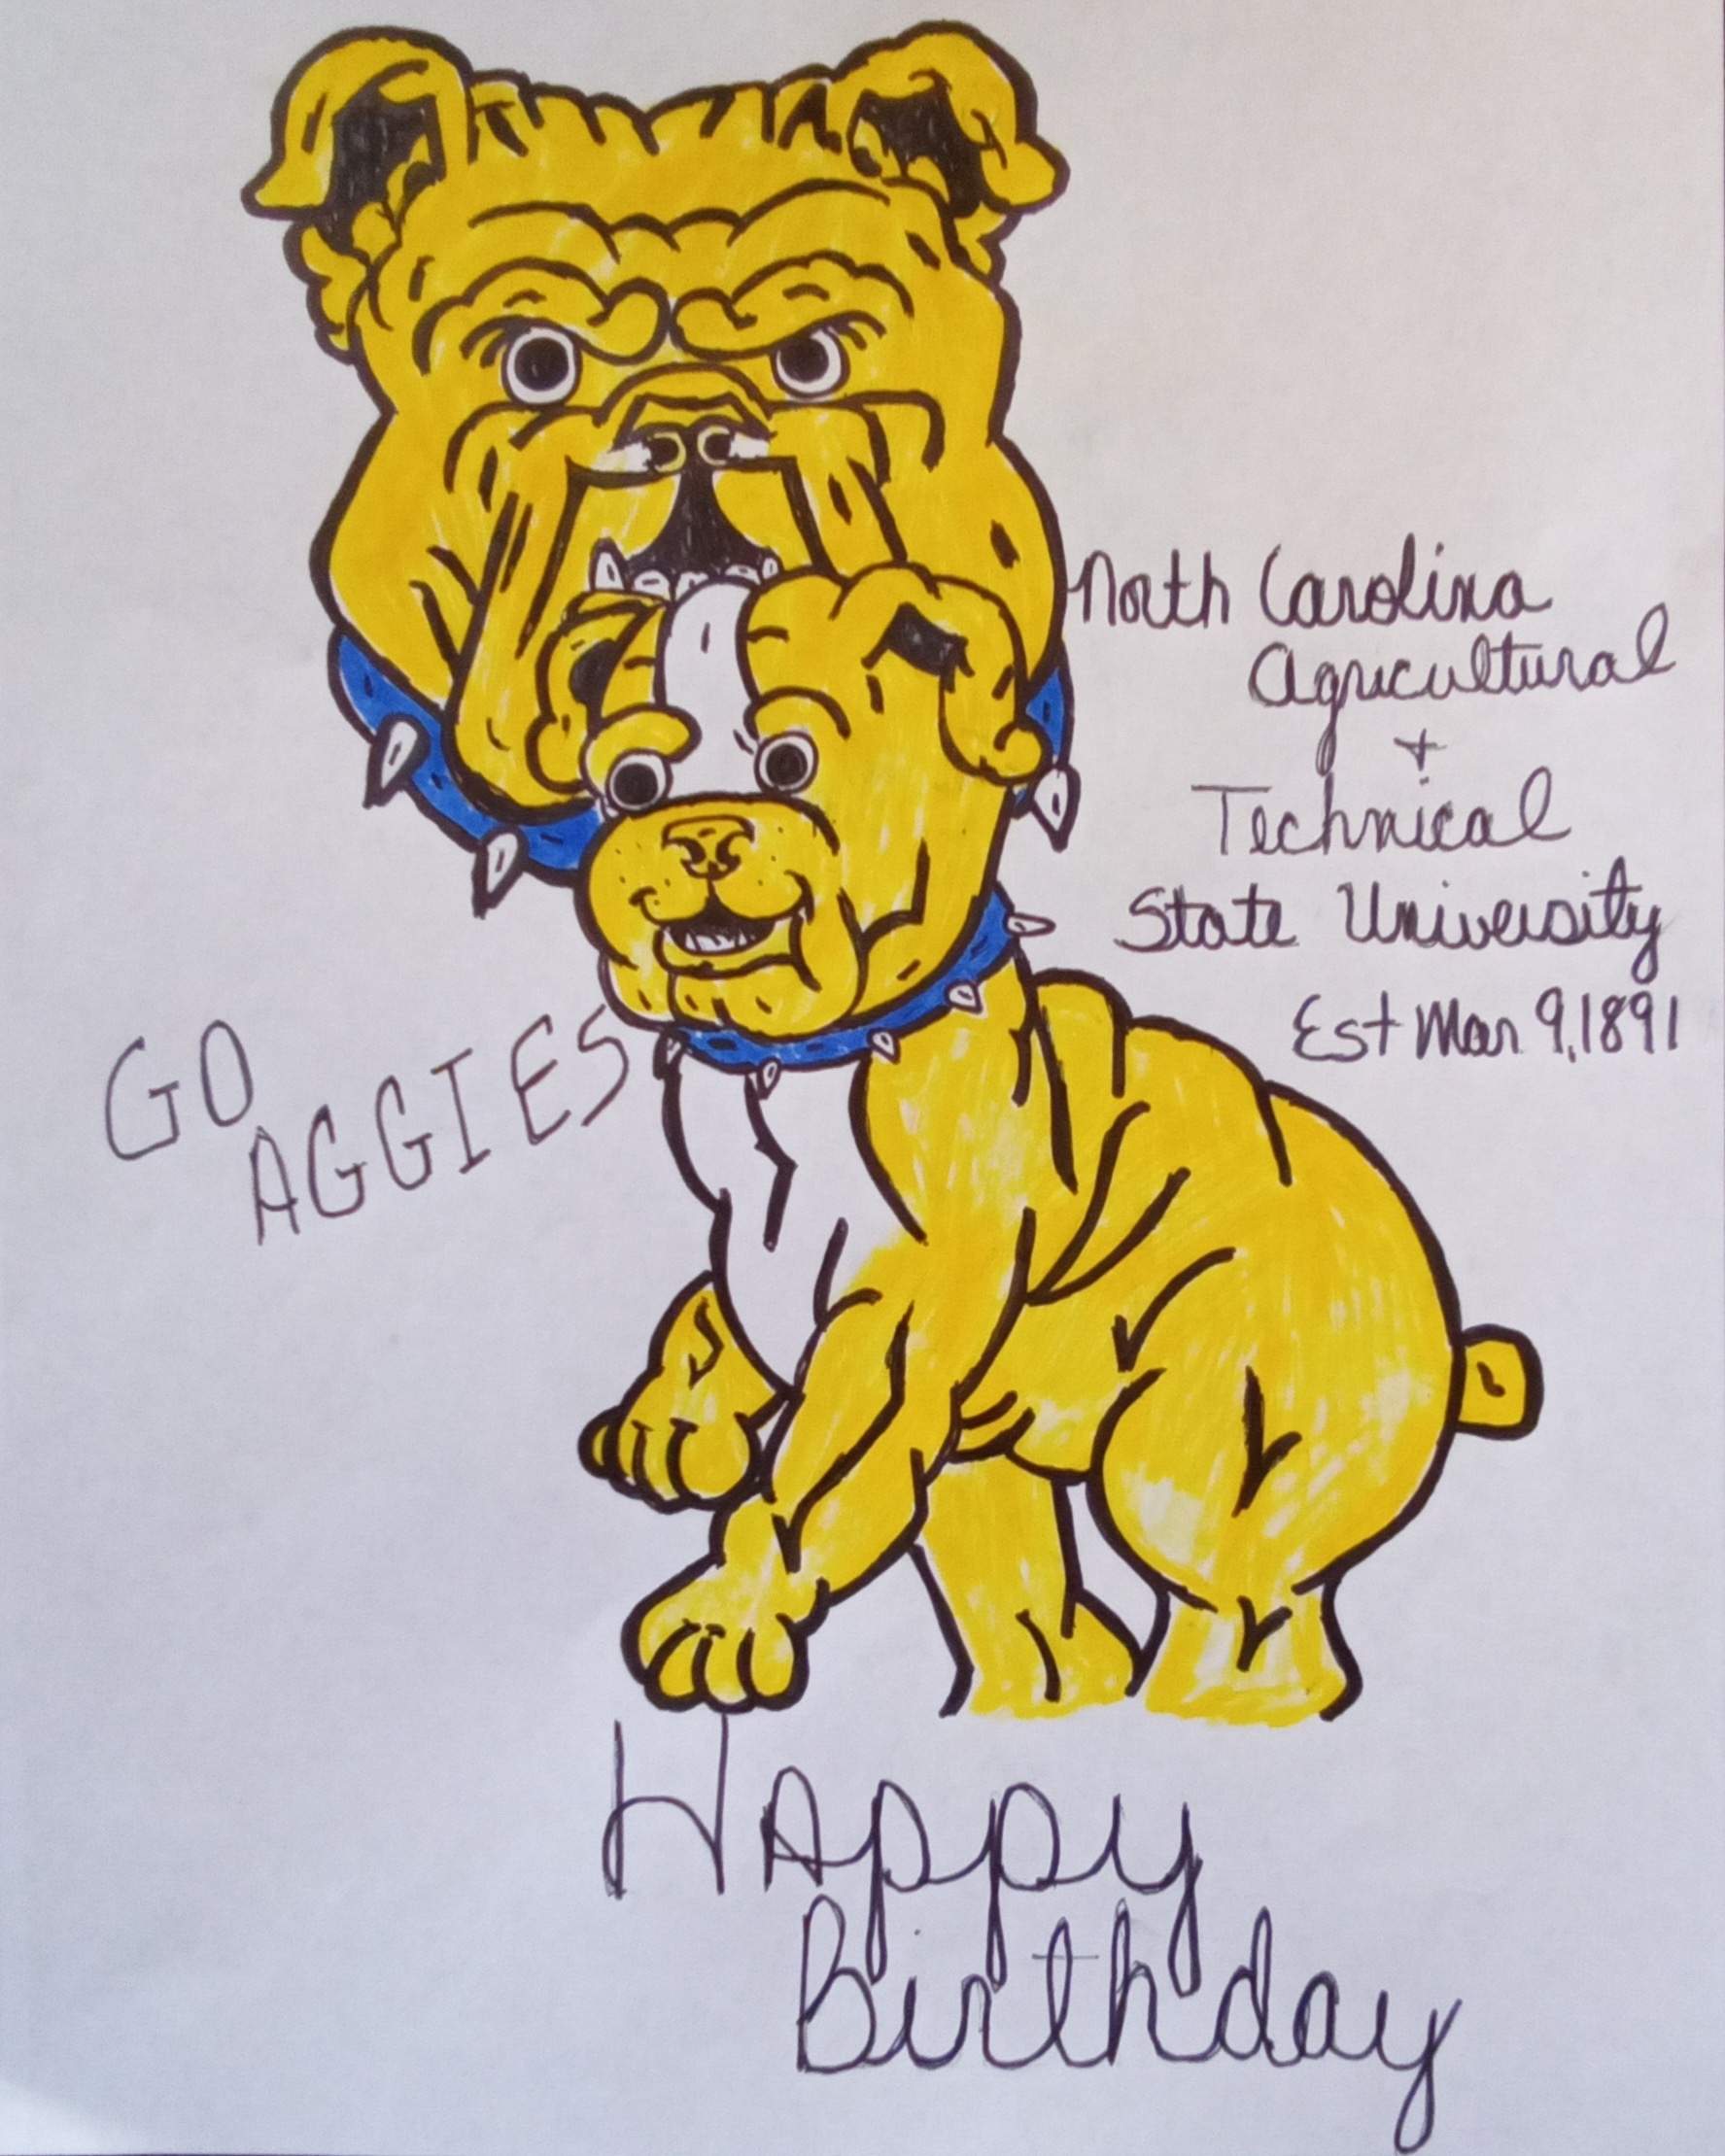 North Carolina
Agricultural
+
Technical
State University
Est Mar 9, 1891
GO
AGGIES
Happy
Birthday